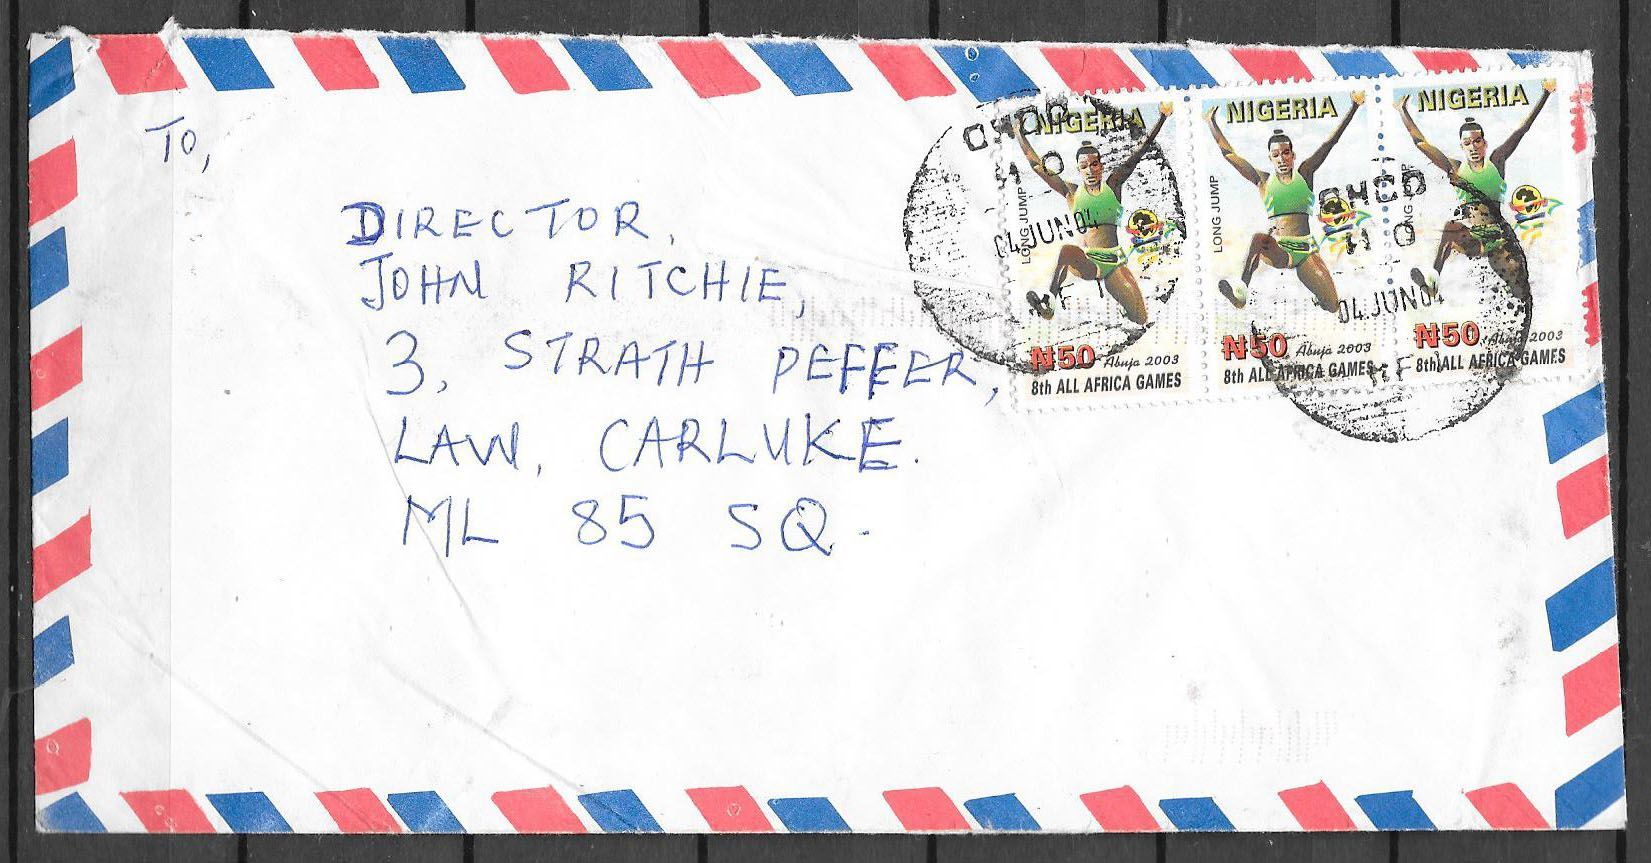 TO,
DIRECTOR,
JOHN RITCHIE,
3, STRATH PEFFER,
LAW, CARLUKE.
ML 85 SQ.
NIGERIA
LONG JUMP
N50 Abuja 2003
8th ALL AFRICA GAMES
NIGERIA
LONG JUMP
₦50 Abuja 2003
8th ALL AFRICA GAMES
NIGERIA
LONG JUMP
₦50 Abuja 2003
8th ALL AFRICA GAMES
04 JUN 04
04 JUN 04